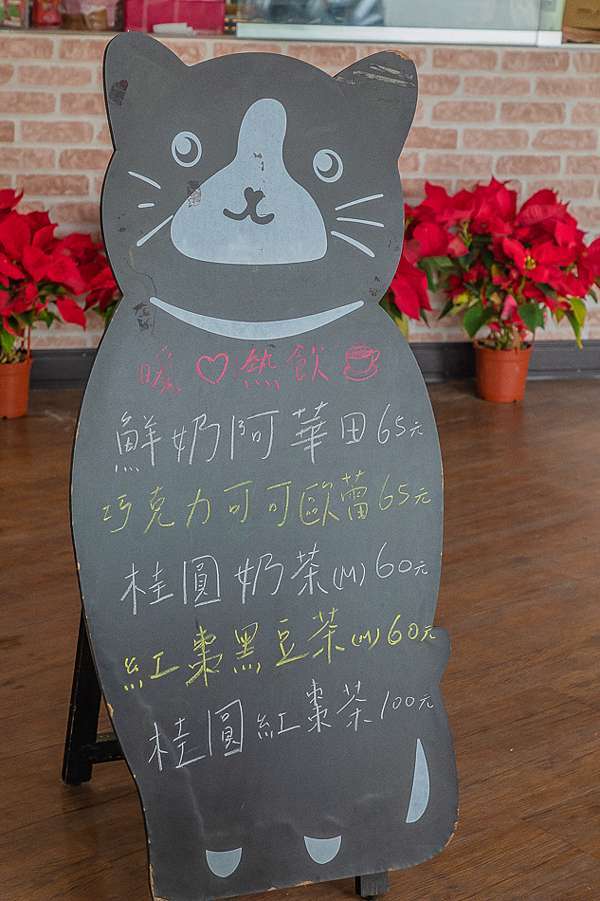 暖♡熱飲
鮮奶阿華田65元
巧克力可可歐蕾65元
桂圓奶茶(M)60元
紅棗黑豆茶(M)60元
桂圓紅棗茶100元